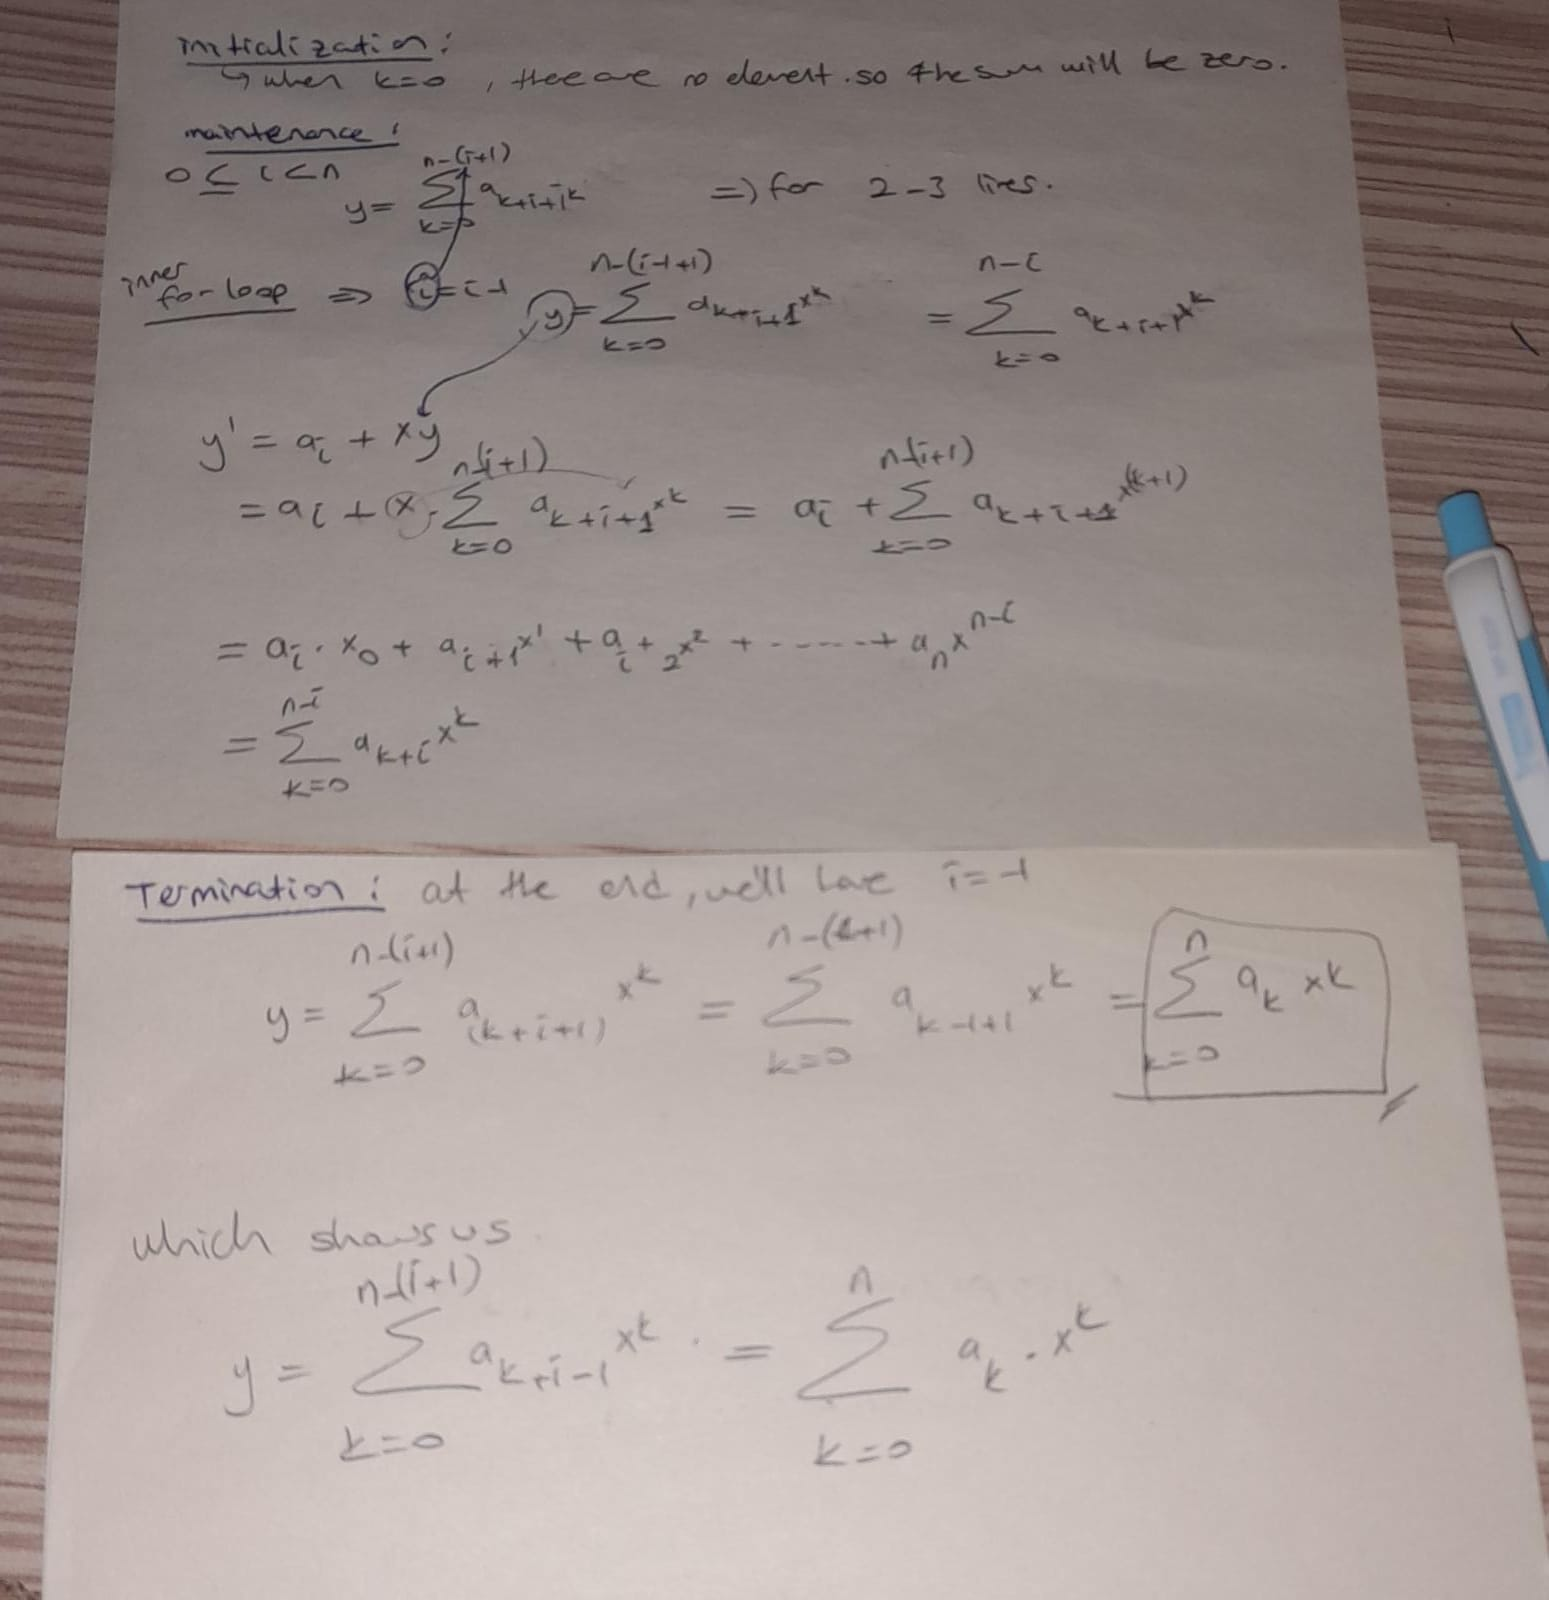 initialization:
↳ when k=0, there are no element. so the sum will be zero.
maintenance:
0 ≤ i < n
y = Σ_{k=0}^{n-(i+1)} a_{k+i+1}^{k} => for 2-3 lines.
inner for-loop => i = i-1 y = Σ_{k=0}^{n-(i-1+1)} a_{k+i+1}x^k = Σ_{k=0}^{n-i} a_{k+i+1}x^k
y' = a_i + xy
= a_i + x · Σ_{k=0}^{n-(i+1)} a_{k+i+1}x^k = a_i + Σ_{k=0}^{n-(i+1)} a_{k+i+1}x^(k+1)
= a_i · x_0 + a_{i+1}x^1 + a_{i+2}x^2 + ------+ a_n x^{n-i}
= Σ_{k=0}^{n-i} a_{k+i} x^k
Termination: at the end, we'll have i=-1
y = Σ_{k=0}^{n-(i+1)} a_{(k+i+1)} x^k = Σ_{k=0}^{n-(-1+1)} a_{k-1+1} x^k = Σ_{k=0}^{n} a_k x^k
which shows us
y = Σ_{k=0}^{n-(i+1)} a_{k+i-1} x^k . = Σ_{k=0}^{n} a_k . x^k